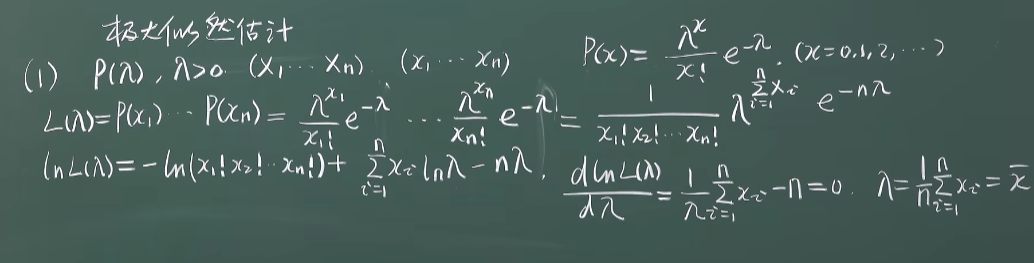 极大似然估计
(1) P(λ), λ>0. (X₁ ⋯ Xn) (x₁ ⋯ xn) P(x) = λ^x / x! e^{-λ}. (x=0,1,2,⋯)
L(λ)=P(x₁) ⋯ P(xn) = λ^{x₁} / x₁! e^{-λ} ⋯ λ^{xn} / xn! e^{-λ} = 1 / (x₁! x₂! ⋯ xn!) λ^{∑_{i=1}^{n} xi} e^{-nλ}
ln L(λ) = -ln(x₁! x₂! ⋯ xn!) + ∑_{i=1}^{n} xi ln λ - nλ. d ln L(λ) / dλ = 1/λ ∑_{i=1}^{n} xi - n = 0. λ = 1/n ∑_{i=1}^{n} xi = x̄